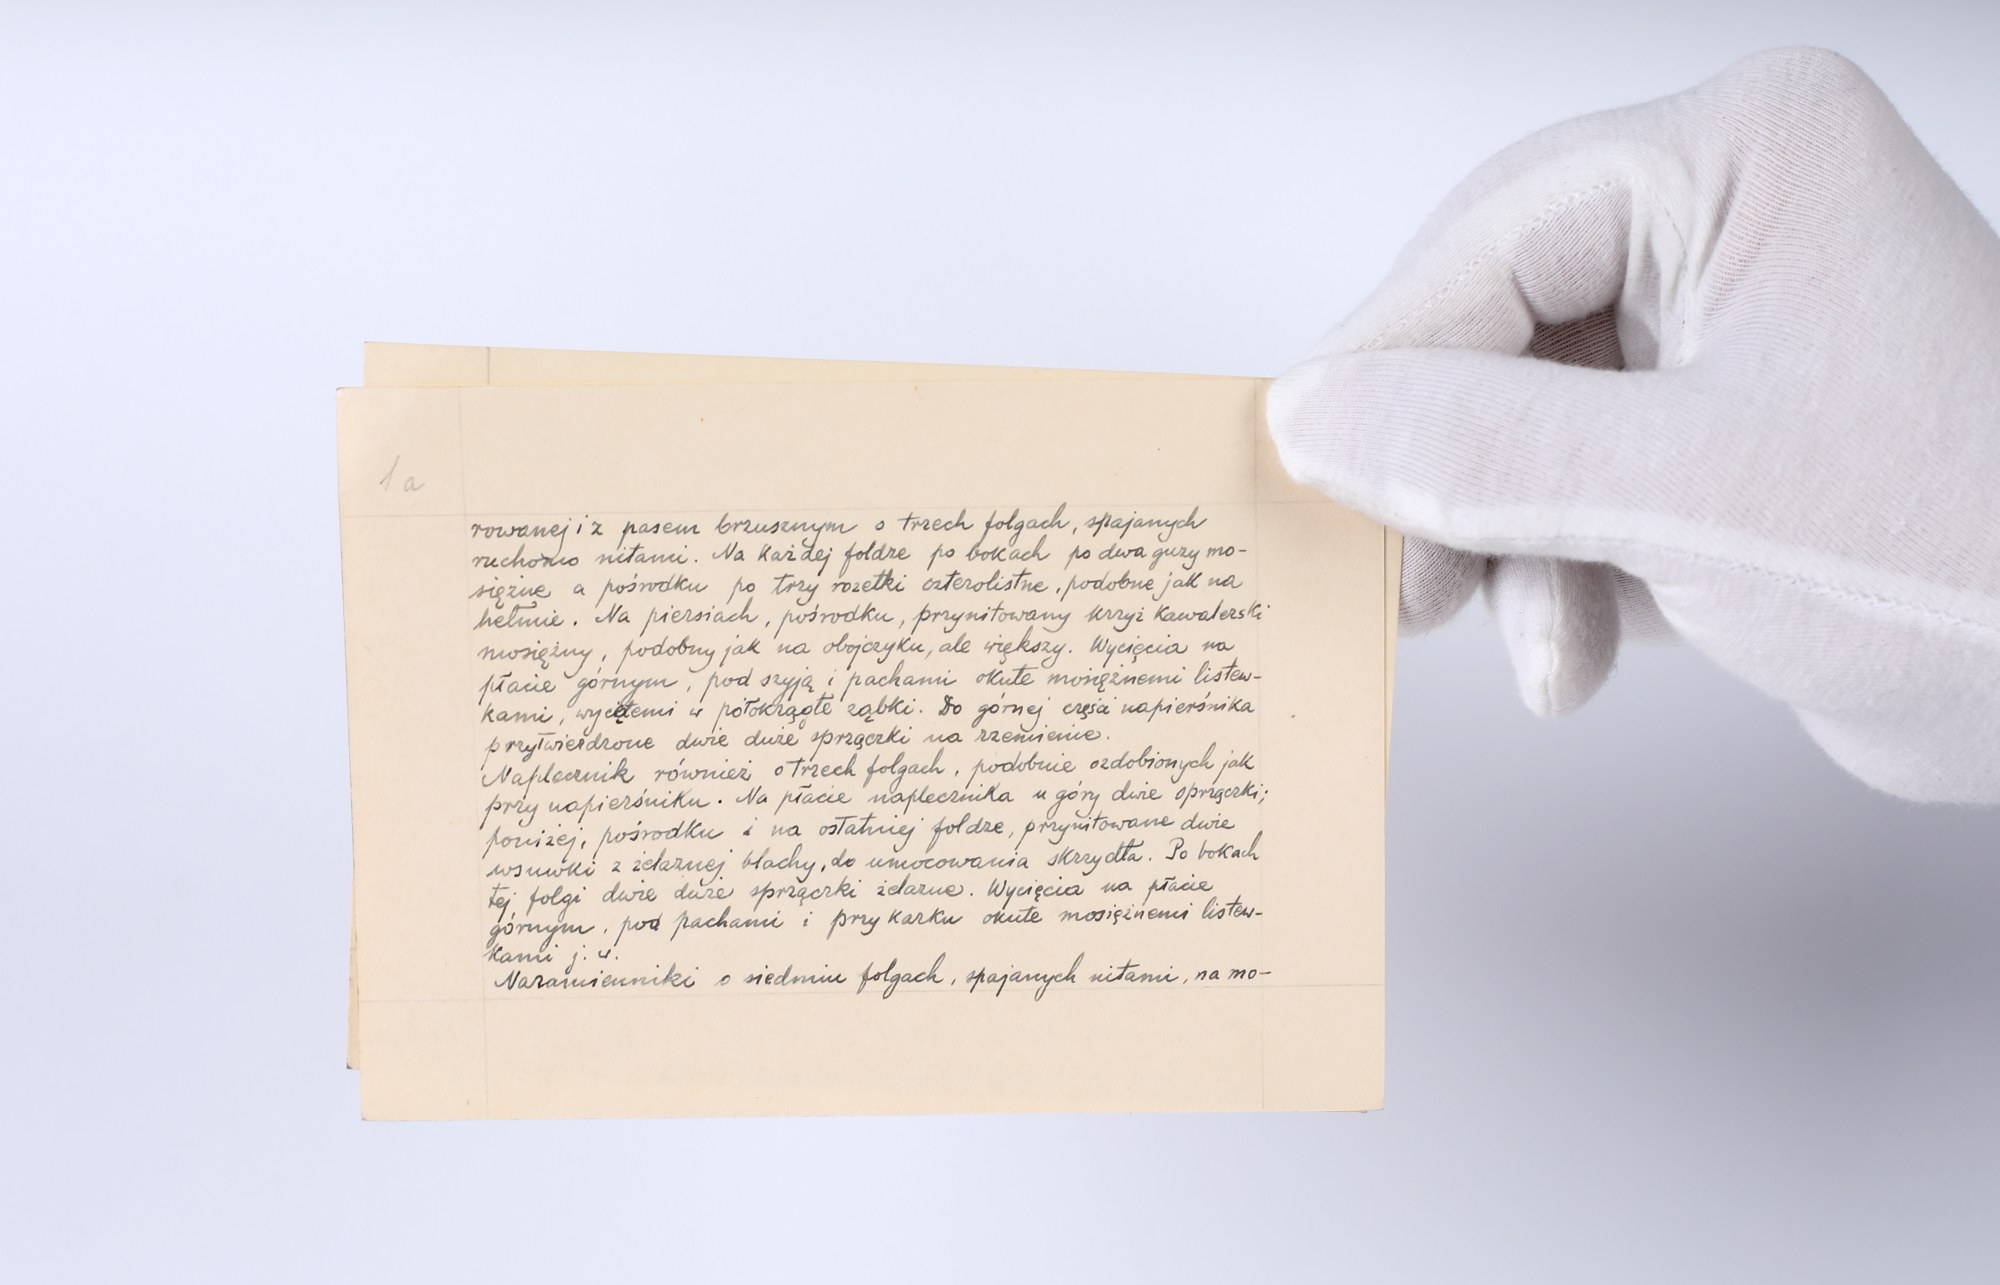 1a
rowanej i z pasem brzusznym o trzech folgach, spajanych
ruchomo nitami. Na każdej foldze po bokach po dwa guzy mo-
siężne a pośrodku po trzy rozetki czterolistne, podobne jak na
hełmie. Na piersiach, pośrodku, przynitowany krzyż kawalerski
mosiężny, podobny jak na obojczyku, ale większy. Wycięcia na
płacie górnym, pod szyją i pachami okute mosiężnemi listew-
kami, wyciętemi w półokrągłe ząbki. Do górnej części napierśnika
przytwierdzone dwie duże sprzączki na rzemienie.
Naplecznik również o trzech folgach, podobnie ozdobionych jak
przy napierśniku. Na płacie naplecznika u góry dwie sprzączki;
poniżej, pośrodku i na ostatniej foldze, przynitowane dwie
wsuwki z żelaznej blachy, do umocowania skrzydła. Po bokach
tej folgi dwie duże sprzączki żelazne. Wycięcia na płacie
górnym, pod pachami i przy karku okute mosiężnemi listew-
kami j. w.
Naramienniki o siedmiu folgach, spajanych nitami, na mo-